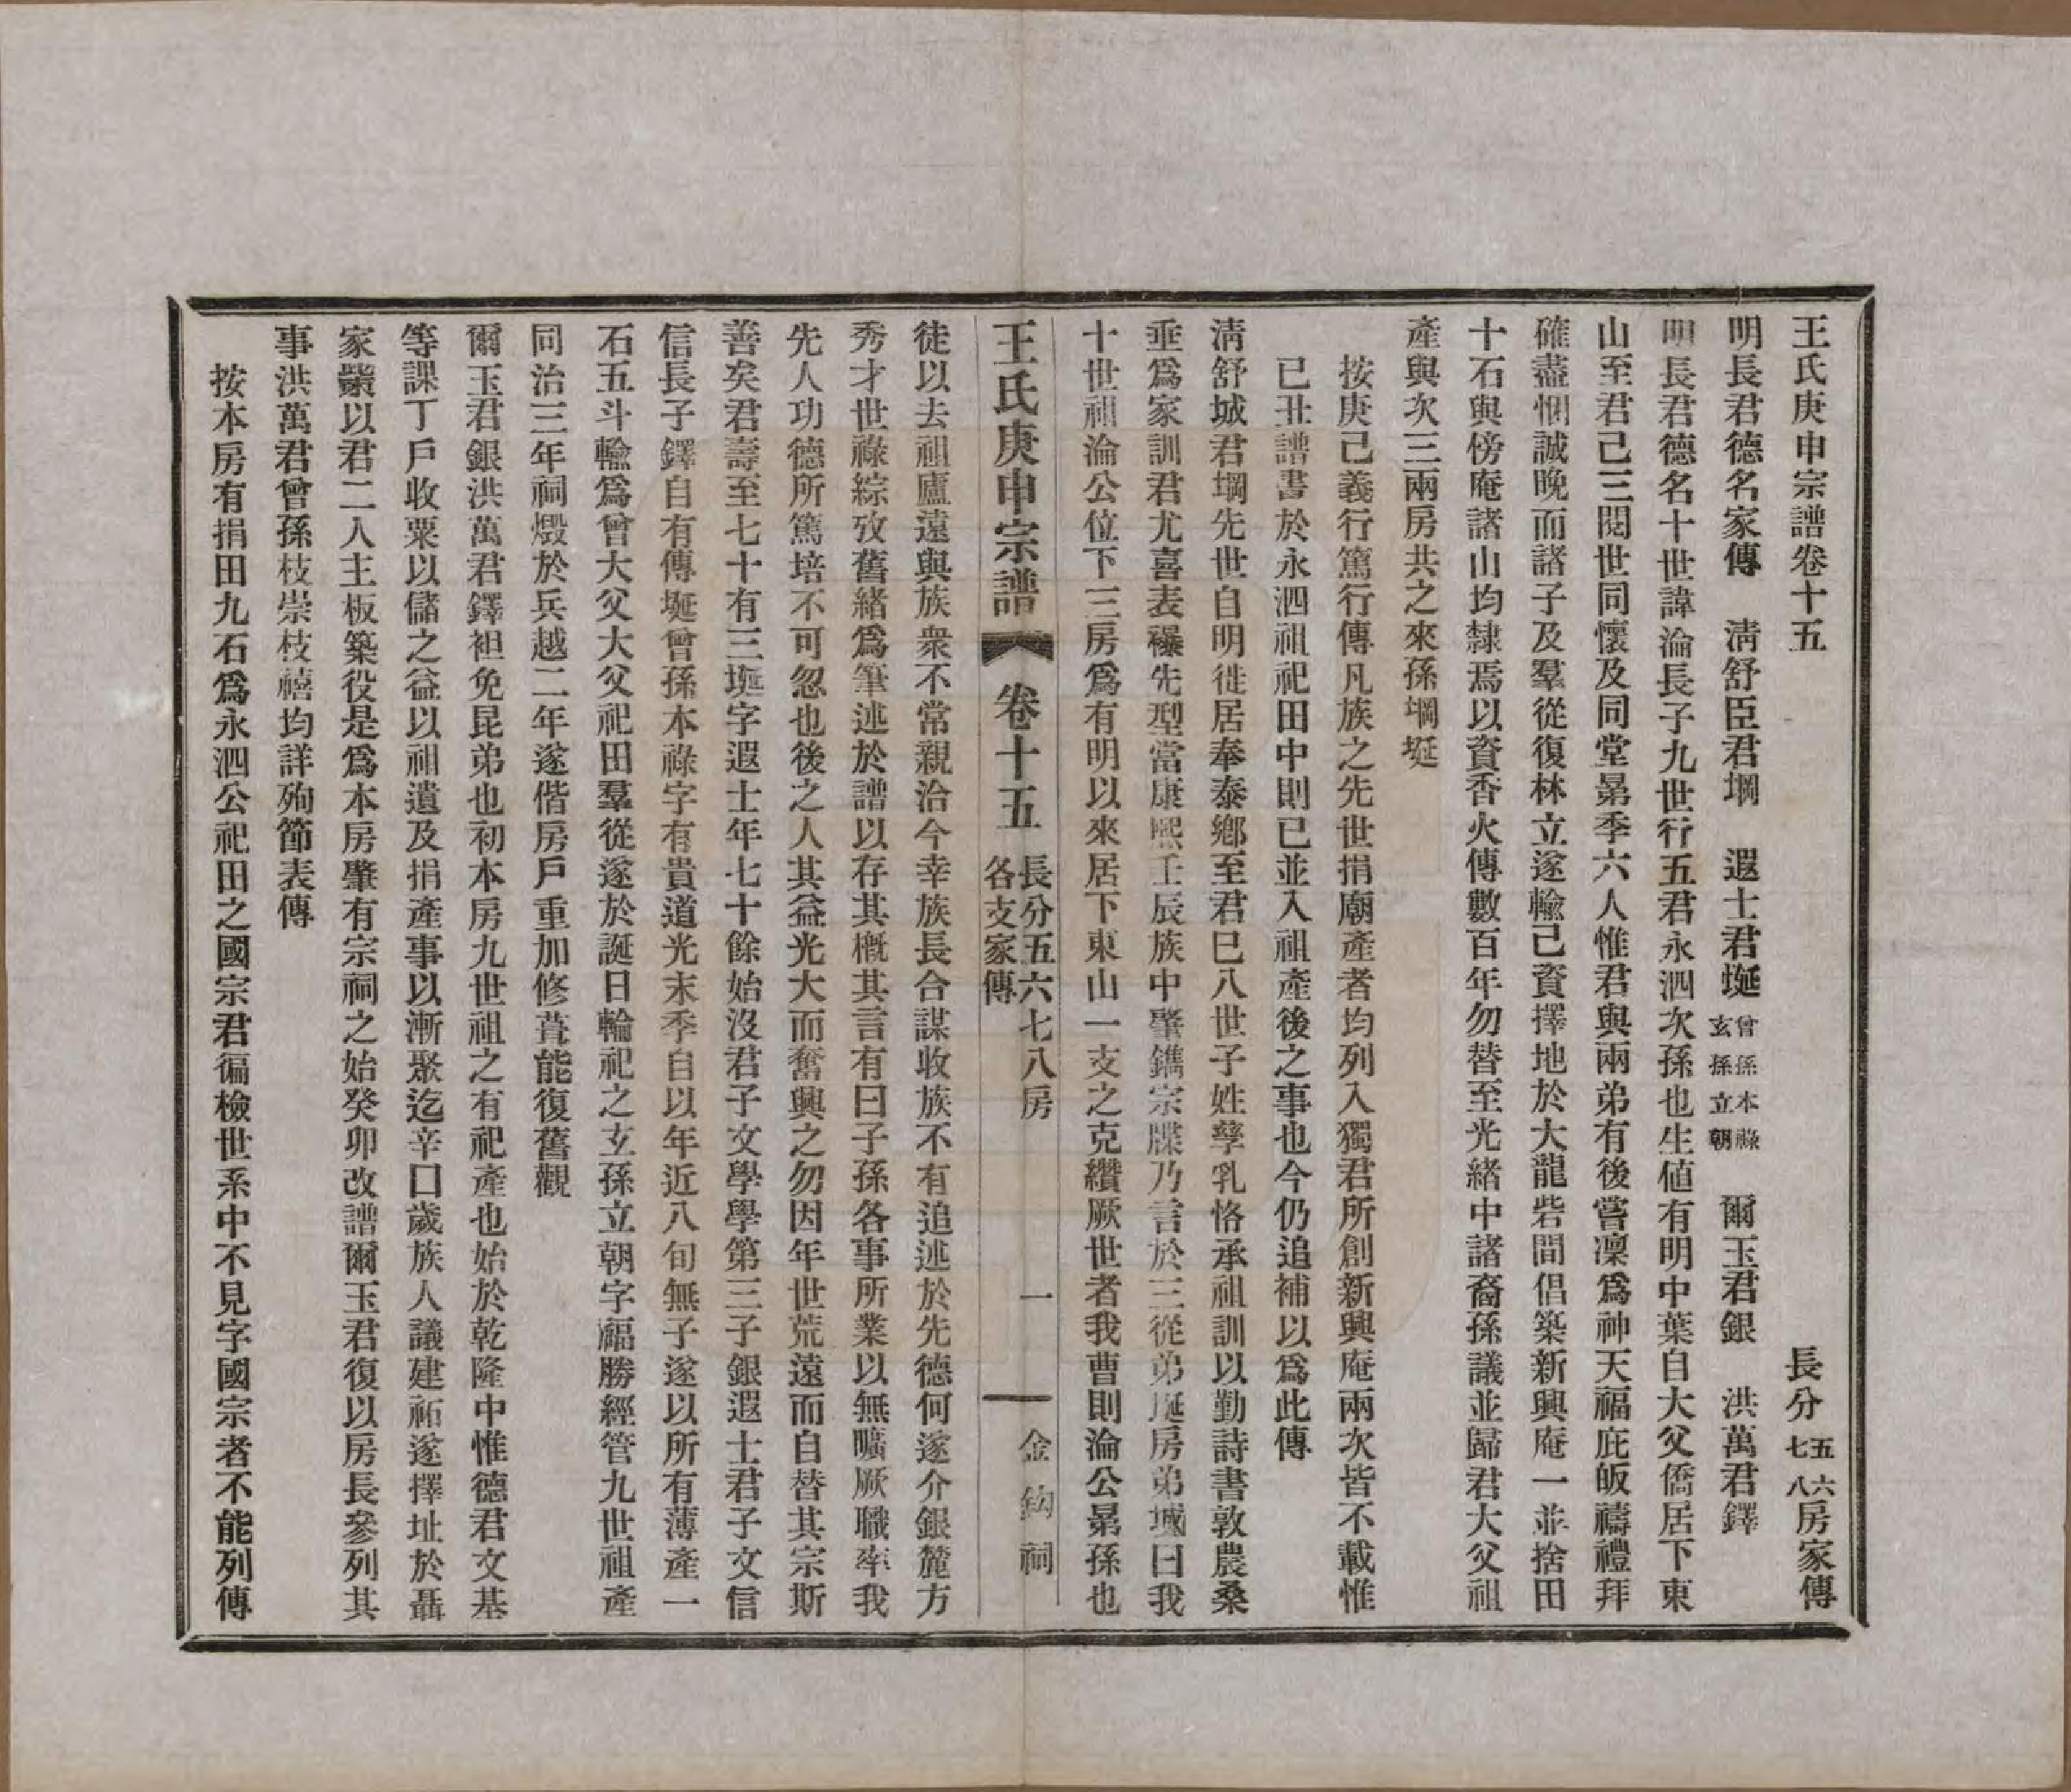 王氏庚申宗譜卷十五　長分五六七八房家傳
明長君德名家傳　淸舒臣君堈　遐士君埏曾孫本祿玄孫立朝　爾玉君銀　洪萬君鐸
明長君德名十世諱淪長子九世行五君永泗次孫也生値有明中葉自大父僑居下東
山至君己三閱世同懷及同堂晜季六人惟君與兩弟有後嘗凜爲神天福庇皈禱禮拜
確盡悃誠晚而諸子及羣從復林立遂輸己資擇地於大龍砦間倡築新興庵一並捨田
十石與傍庵諸山均隸焉以資香火傳數百年勿替至光緒中諸裔孫議並歸君大父祖
產與次三兩房共之來孫堈埏
按庚己義行篤行傳凡族之先世捐廟產者均列入獨君所創新興庵兩次皆不載惟
已丑譜書於永泗祖祀田中則已並入祖產後之事也今仍追補以爲此傳
淸舒城君堈先世自明徙居奉泰鄉至君巳八世子姓孳乳恪承祖訓以勤詩書敦農桑
垂爲家訓君尤喜表襮先型當康熙壬辰族中肇鐫宗牒乃言於三從弟埏房弟堿曰我
十世祖淪公位下三房爲有明以來居下東山一支之克纘厥世者我曹則淪公晜孫也
王氏庚申宗譜　卷十五　長分五六七八房各支家傳　一　金鈎祠
徒以去祖廬遠與族衆不常親洽今幸族長合謀收族不有追述於先德何遂介銀麓方
秀才世祿綜攷舊緒爲筆述於譜以存其槪其言有曰子孫各事所業以無曠厥職率我
先人功德所篤培不可忽也後之人其益光大而奮興之勿因年世荒遠而自替其宗斯
善矣君壽至七十有三埏字遐士年七十餘始沒君子文學學第三子銀遐士君子文信
信長子鐸自有傳埏曾孫本祿字有貴道光末季自以年近八旬無子遂以所有薄產一
石五斗輸爲曾大父大父祀田羣從遂於誕日輪祀之玄孫立朝字福勝經管九世祖產
同治三年祠燬於兵越二年遂偕房戶重加修葺能復舊觀
爾玉君銀洪萬君鐸袒免昆弟也初本房九世祖之有祀產也始於乾隆中惟德君文基
等課丁戶收粟以儲之益以祖遺及捐產事以漸聚迄辛口歲族人議建祏遂擇址於聶
家𡽱以君二人主板築役是爲本房肇有宗祠之始癸卯改譜爾玉君復以房長參列其
事洪萬君曾孫枝崇枝禧均詳殉節表傳
按本房有捐田九石爲永泗公祀田之國宗君徧檢世系中不見字國宗者不能列傳